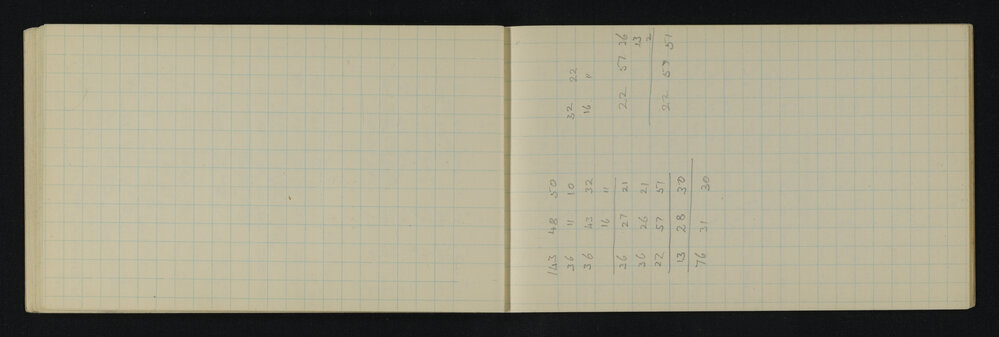 143 48 50
36 11 10
36 43 32
16 11
36 27 21
36 26 21
22 57 51
13 28 30
76 31 30
32 22
16 11
22 57 36
13
2
22 57 51